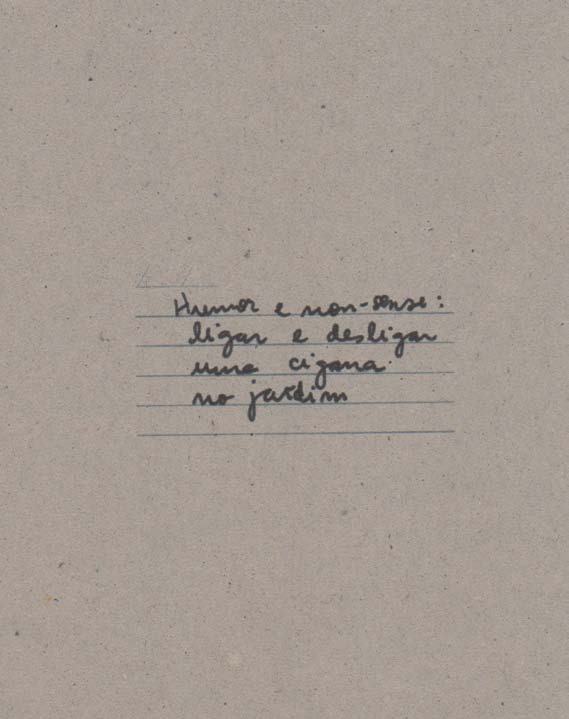 Humor e non-sense:
ligar e desligar
uma cigana
no jardim